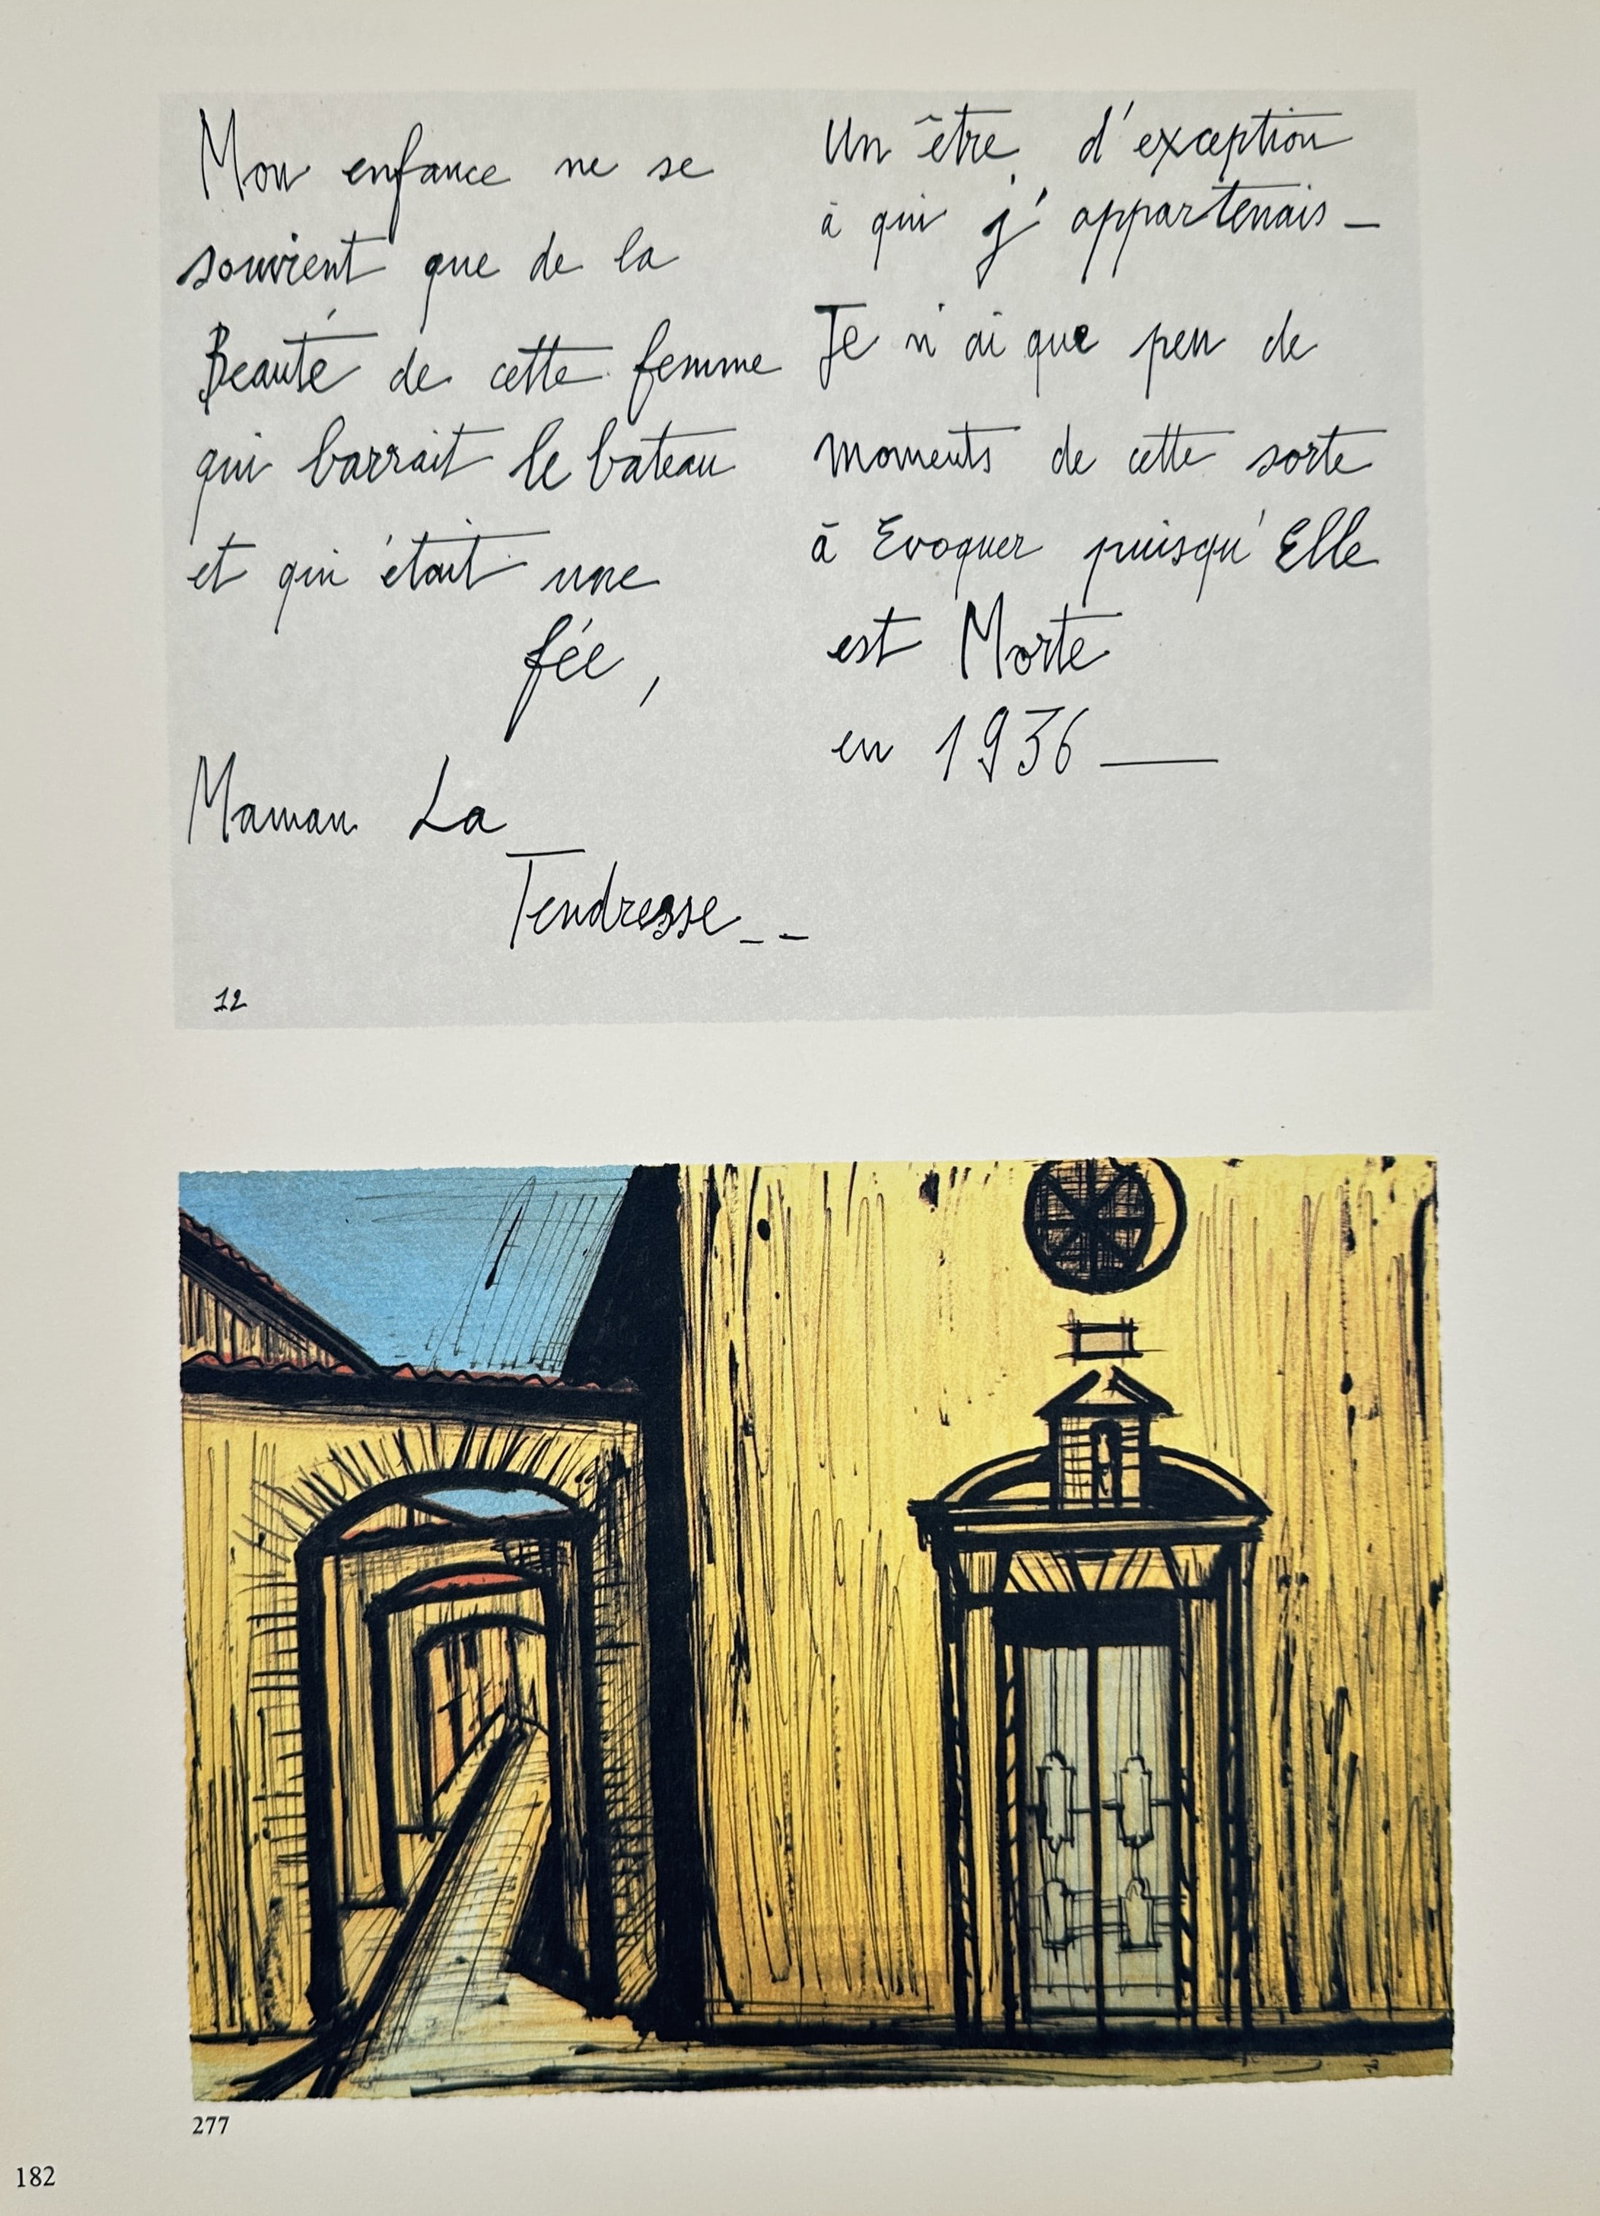 Mon enfance ne se
souvient que de la
Beauté de cette femme
qui barrait le bateau
et qui était une
fée,
Maman La
Tendresse - -
12
Un être d'exception
à qui j'appartenais -
Je n'ai que peu de
moments de cette sorte
à Evoquer puisqu'Elle
est Morte
en 1936 —
277
182